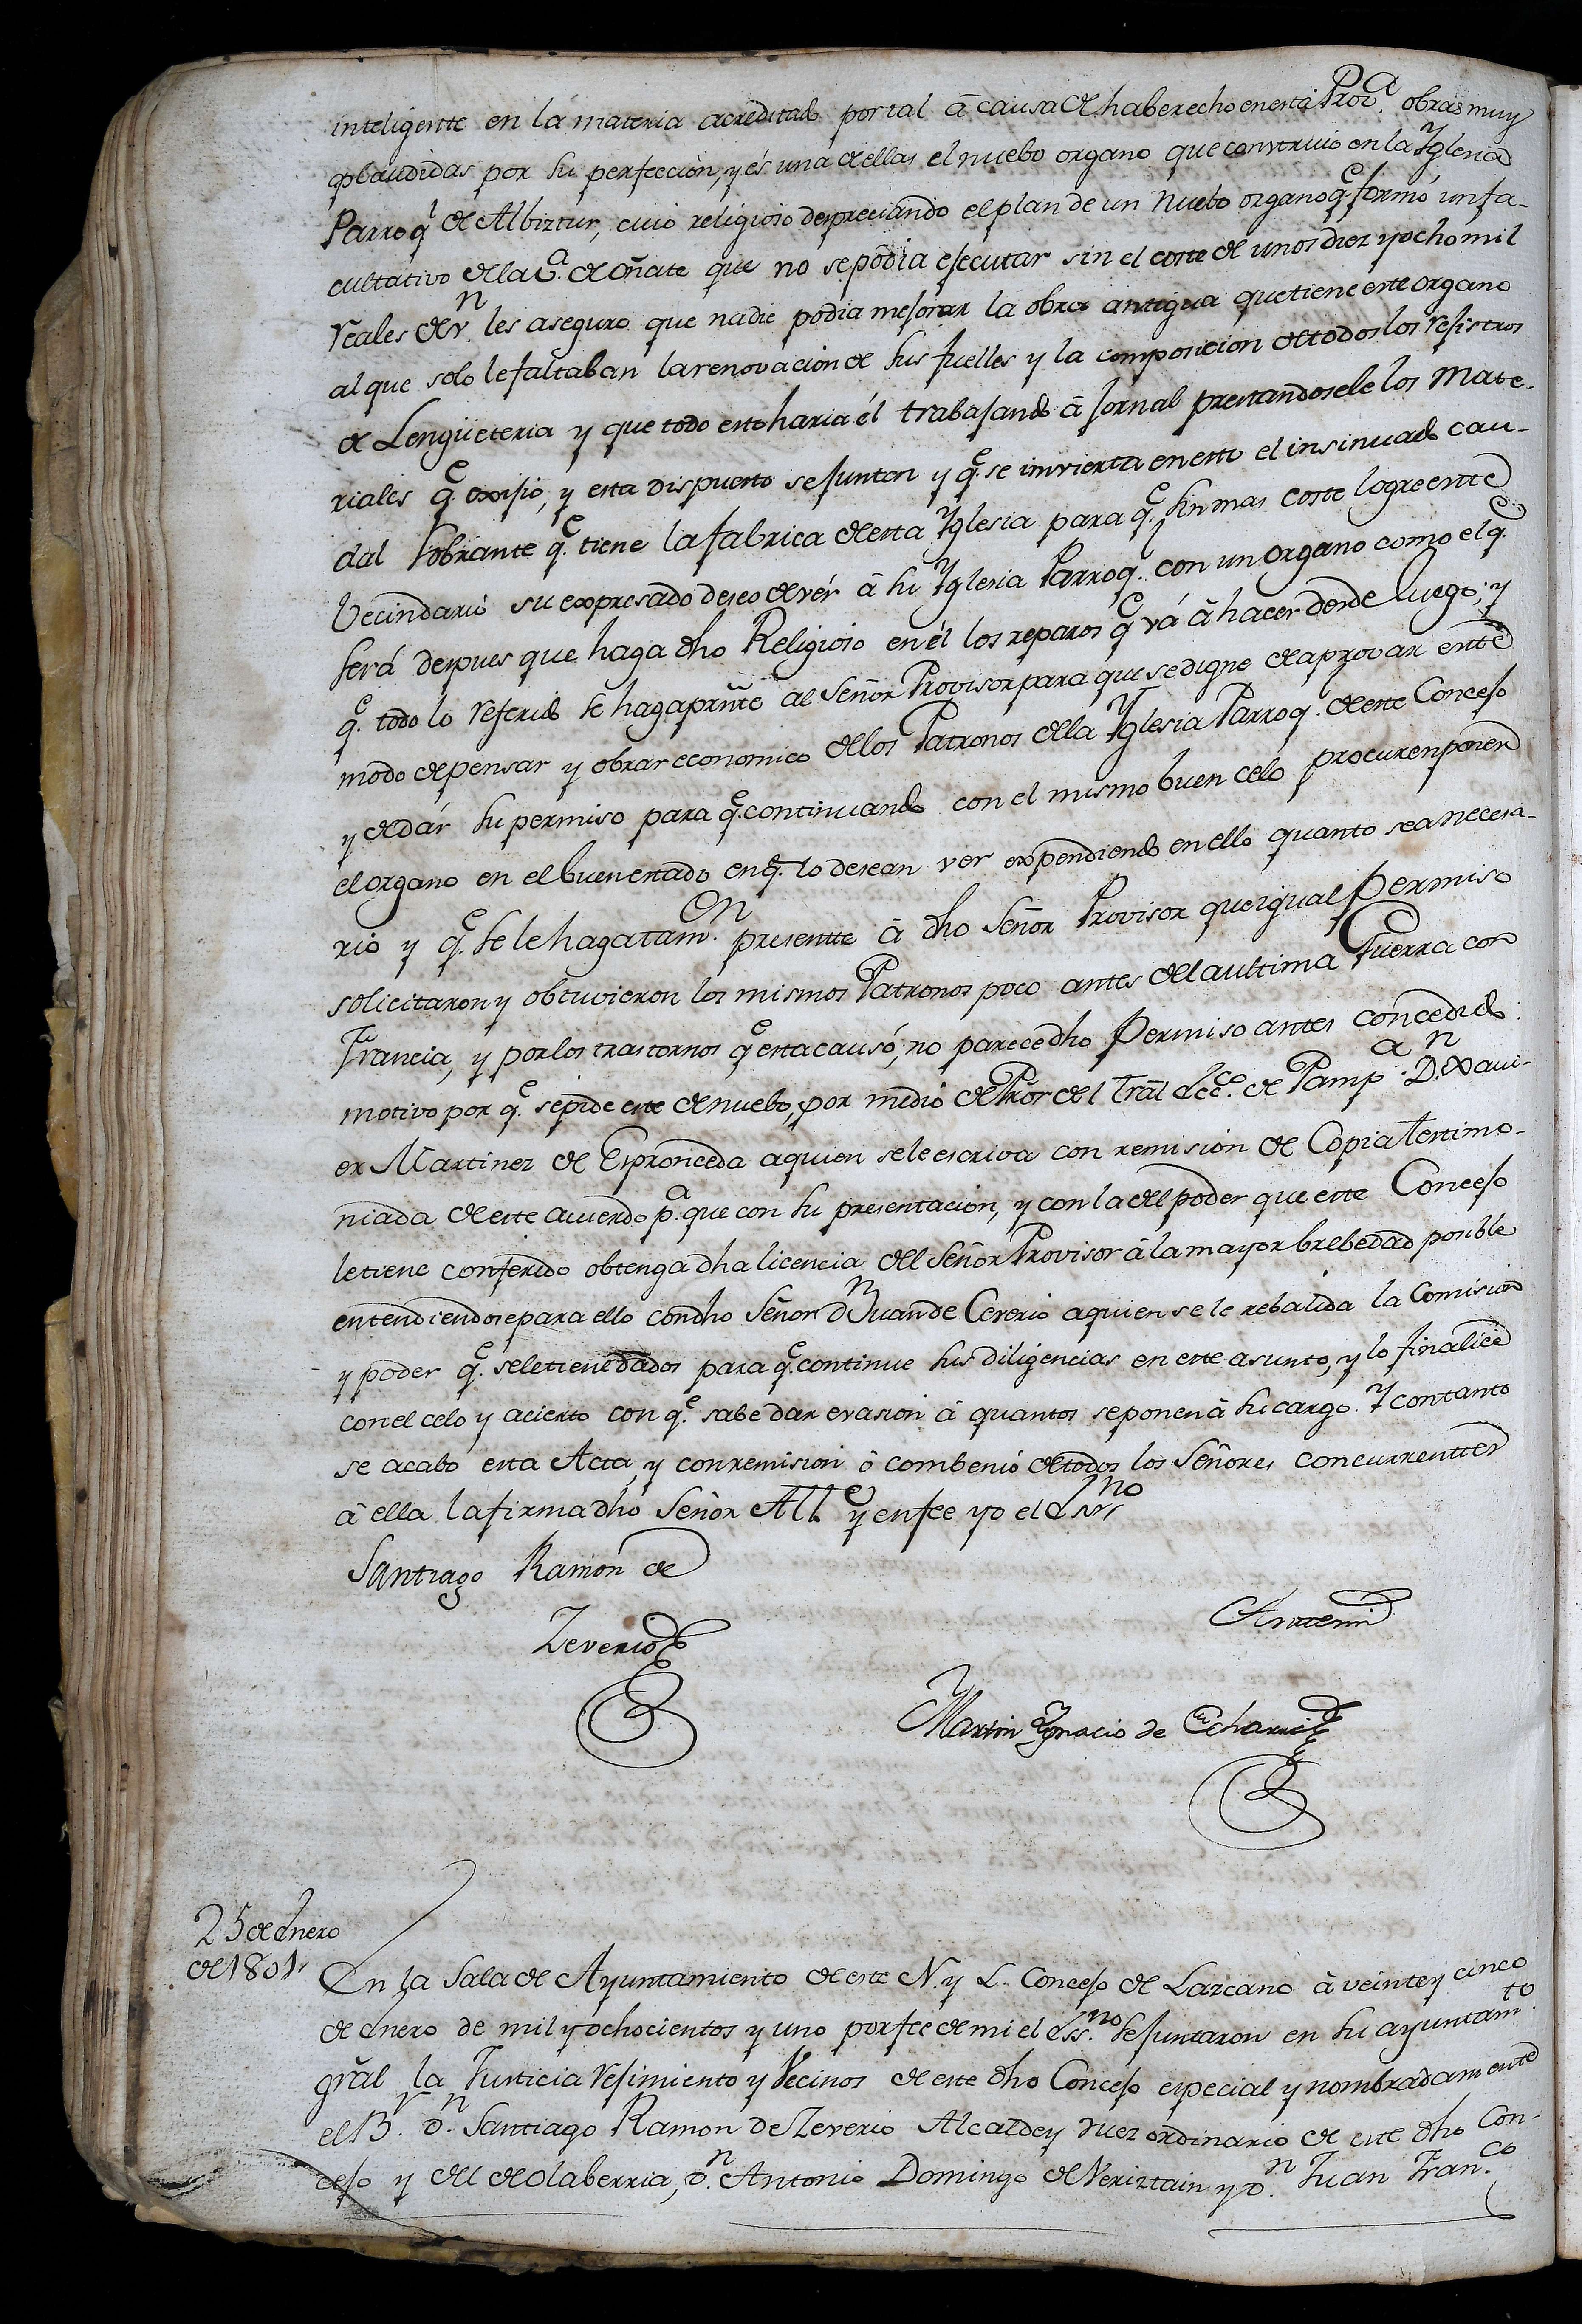 inteligente en la materia acreditado por tal â causa de haber echo en esta Prov.ª obras muy
aplaudidas por su perfeccion, y és una de ellas el nuebo organo que construio en la Yglesia
Parroq.l de Albiztur, cuio religioso despreciando el plan de un nuebo organo q.e formó un fa-
cultativo de la V.ª de Oñate que no se podia ejecutar sin el coste de unos diez y ocho mil
reales de v.n les aseguro que nadie podia mejorar la obra antigua que tiene este organo
al que solo le faltaban la renovacion de sus fuelles y la composicion de todos los rejistros
de Lengüeteria y que todo esto haria él trabajando â jornal prestandosele los mate-
riales q.e exijio, y esta dispuesto se junten y q.e se imvierta en esto el insinuado cau-
dal sobrante q.e tiene la fabrica de esta Yglesia para q.e sin mas coste logre este
Vecindario su expresado deseo de vér â su Yglesia Parroq.l con un organo como el q.e
será despues que haga dho Religioso en él los reparos q.e vá â hacer desde luego; y
q.e todo lo referido se haga prnte al Señor Provisor para que se digne de aprovar este
modo de pensar y obrar economico de los Patronos de la Yglesia Parroq.l de este Concejo
y de dár su permiso para q.e continuando con el mismo buen celo procuren poner
el organo en el buen estado en q.e lo desean ver expendiendo en ello quanto sea necesa-
rio y q.e se le haga tam.en presentte â dho Señor Provisor que igual Permiso
solicitaron y obtuvieron los mismos Patronos poco antes de la ultima Guerra con
Francia, y por los trastornos q.e esta causó, no parece dho Permiso antes concedido:
motivo por q.e se pide este de nuebo, por medio de Pror del Tral Ecc.co de Pamp.ª D.n Xavi-
er Martinez de Espronceda a quien se le escriva con remision de Copia testimo-
niada de este acuerdo p.ª que con su presentacion, y con la del poder que este Concejo
le tiene conferido obtenga dha licencia del Señor Provisor â la mayor brebedad posible
entendiendose para ello con dho Señor D.n Juan de Ceverio a quien se le rebalida la Comision
y poder q.e se le tiene dados para q.e continue sus diligencias en este asunto, y lo finalice
con el celo y acierto con q.e sabe dar evasion â quantos se ponen â su cargo. Y con tanto
se acabo esta Acta, y con remision ô combenio de todos los Señores concurrenttes
â ella la firma dho Señor Alld.e y en fee yo el Ess.no
Santiago Ramon de
Zeverio
Antemi
Martin Ygnacio de Echarri
25 de Enero
de 1801.
En la Sala de Ayuntamiento de este N. y L. Concejo de Lazcano â veinte y cinco
de Enero de mil y ochocientos y uno por fee de mi el Ess.no se juntaron en su ayuntam.to
gral la Justicia rejimiento y Vecinos de este dho Concejo especial y nombradamente
el B.r D.n Santiago Ramon de Zeverio Alcalde y Juez ordinario de este dho Con-
cejo y del de Olaberria, D.n Antonio Domingo de Veriztain y D.n Juan Fran.co